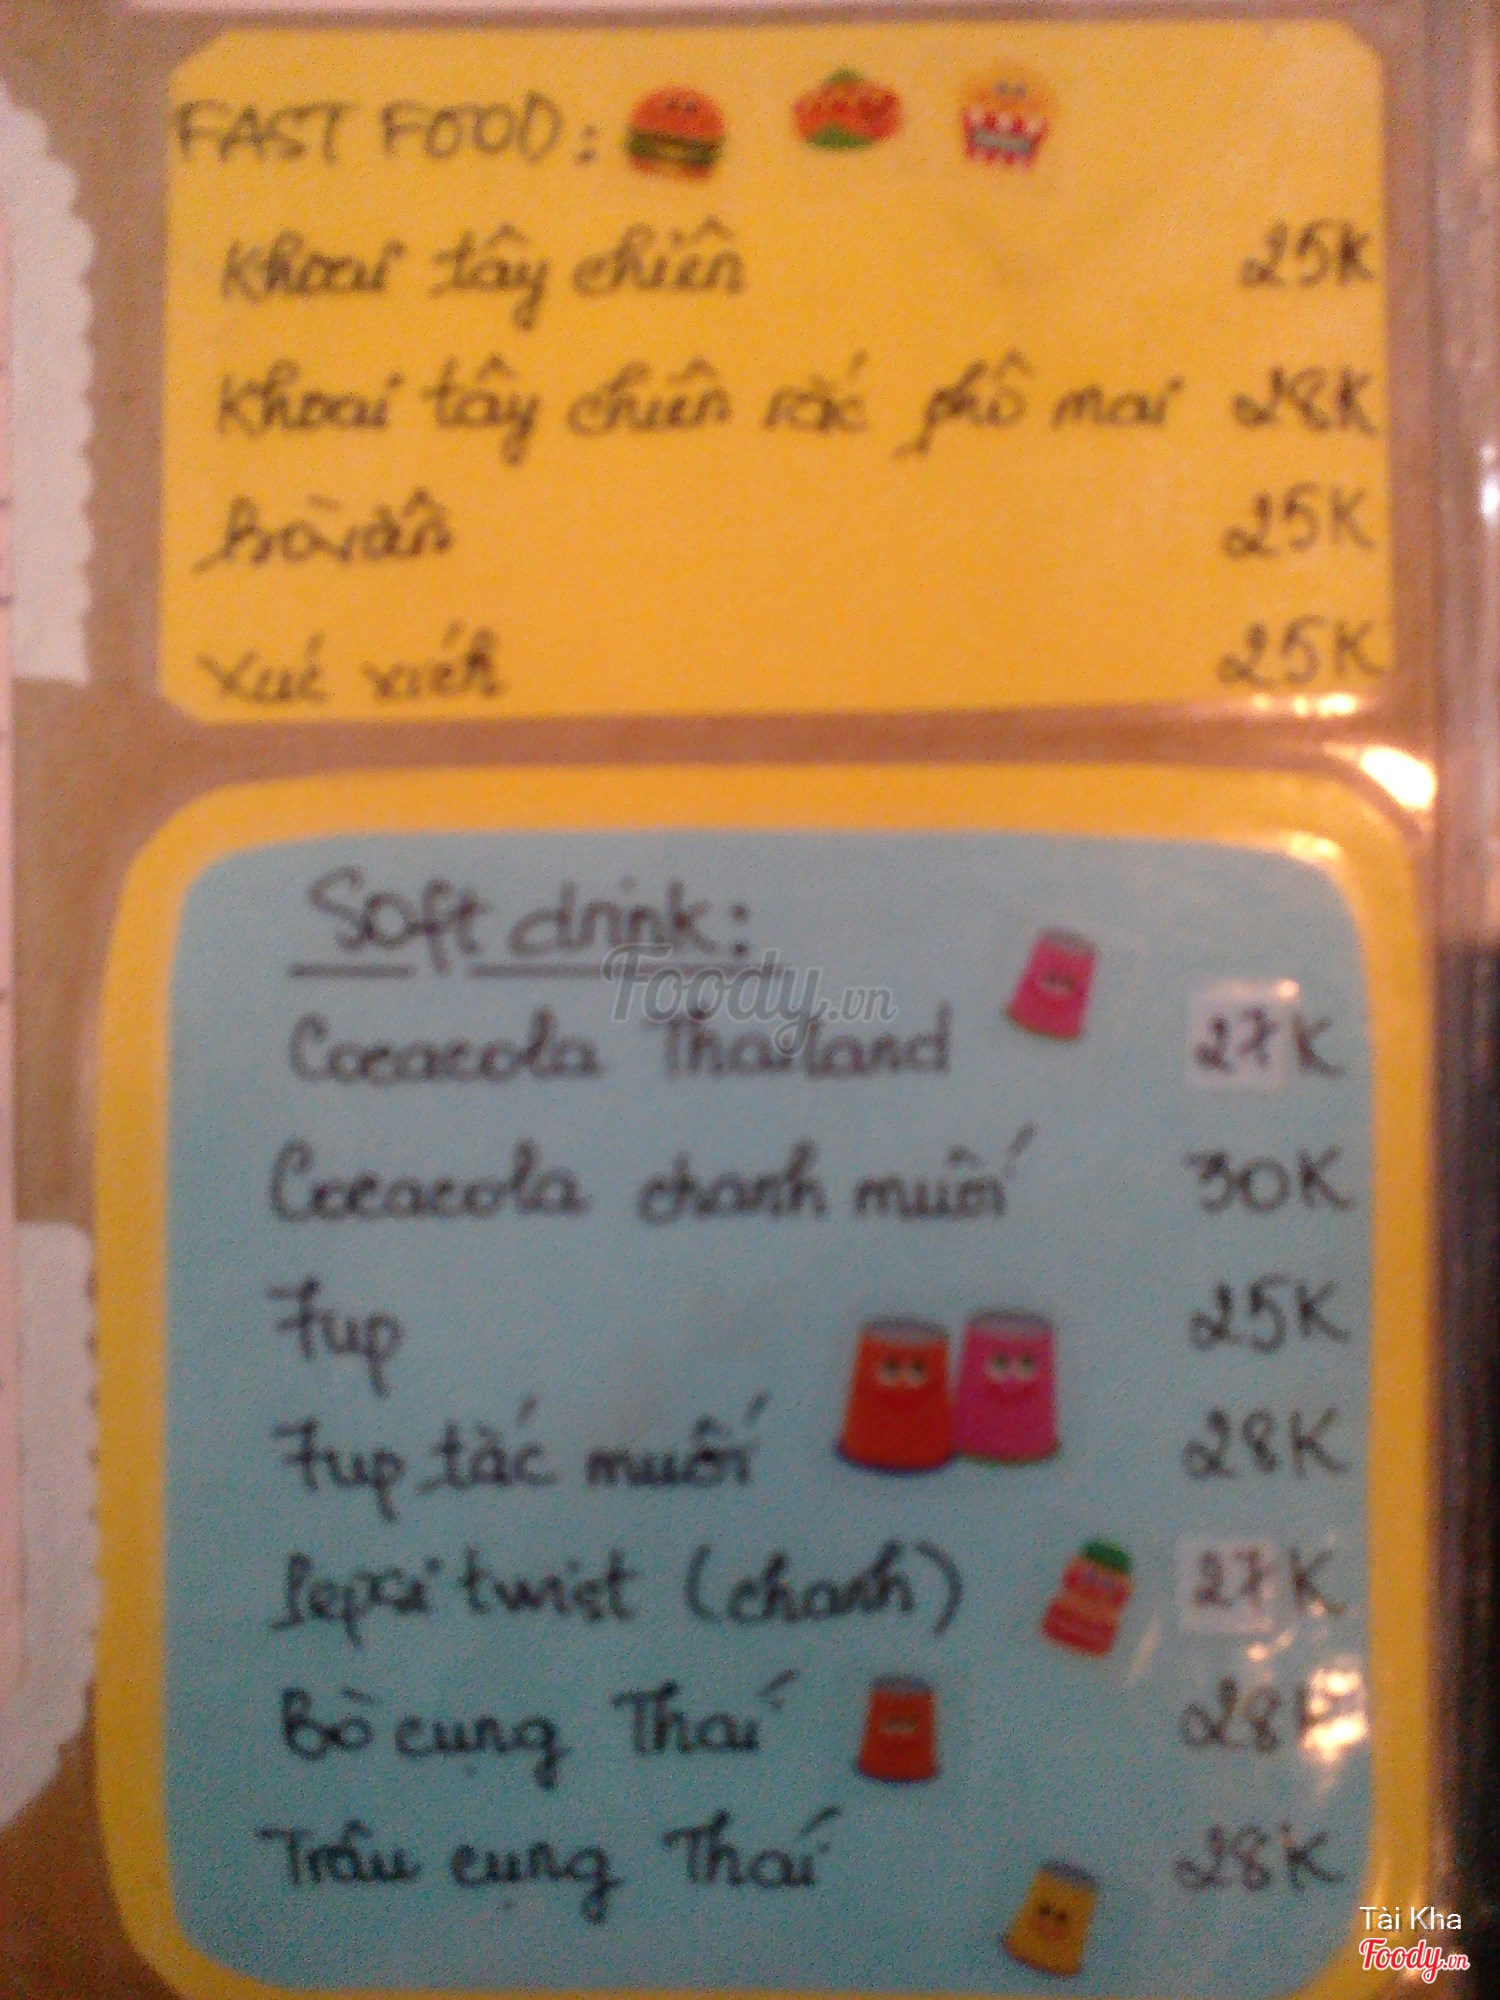 FAST FOOD:
Khoai tây chiên 25K
Khoai tây chiên rắc phô mai 28K
Bò viên 25K
Xúc xích 25K
Soft drink:
Foody.vn
Cocacola Thailand 27K
Cocacola chanh muối 30K
7up 25K
7up tắc muối 28K
Pepsi twist (chanh) 27K
Bò cụng Thái 28K
Trâu cụng Thái 28K
Tài Kha
Foody.vn